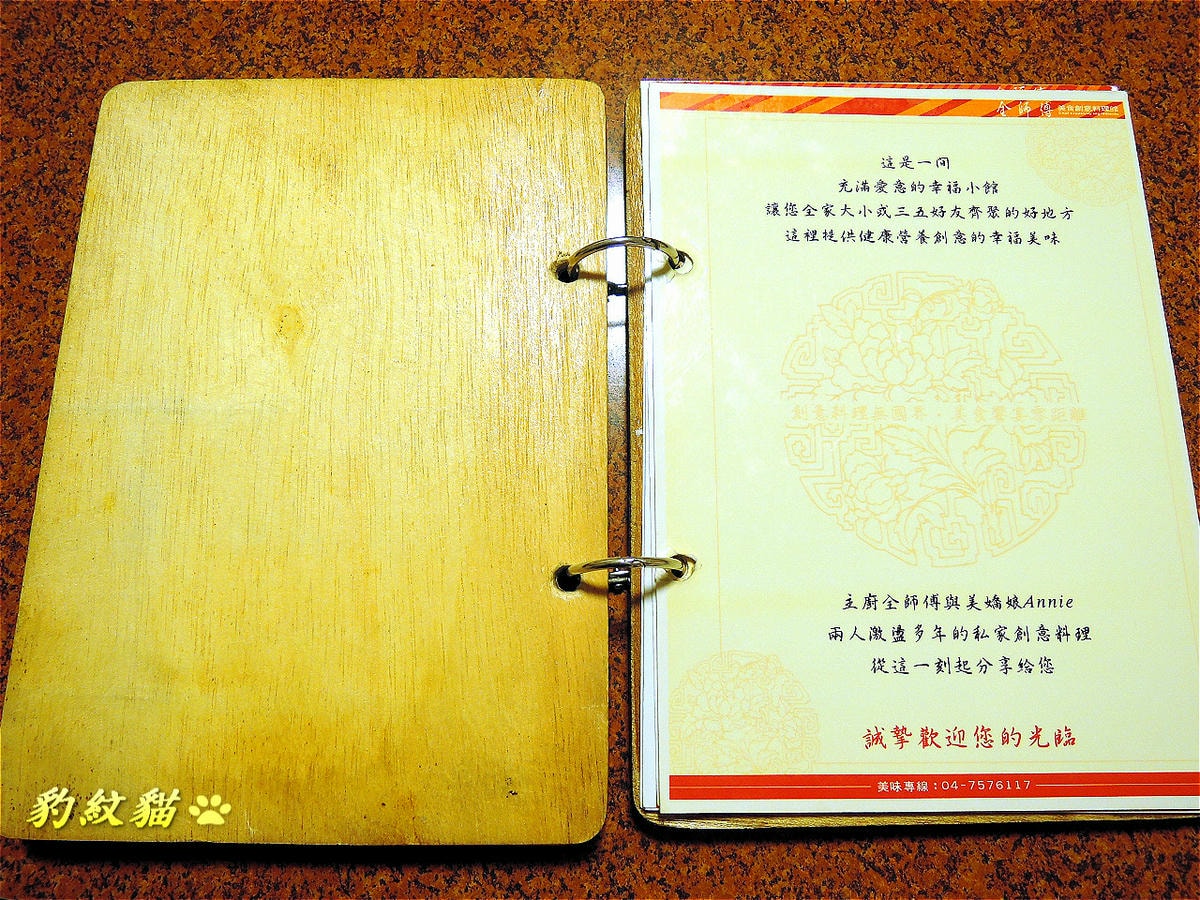 全師傅 美食創意料理館
這是一間
充滿愛意的幸福小館
讓您全家大小或三五好友齊聚的好地方
這裡提供健康營養創意的幸福美味
創意料理無國界・美食饗宴零距離
主廚全師傅與美嬌娘Annie
兩人激盪多年的私家創意料理
從這一刻起分享給您
誠摯歡迎您的光臨
美味專線：04-7576117
豹紋貓